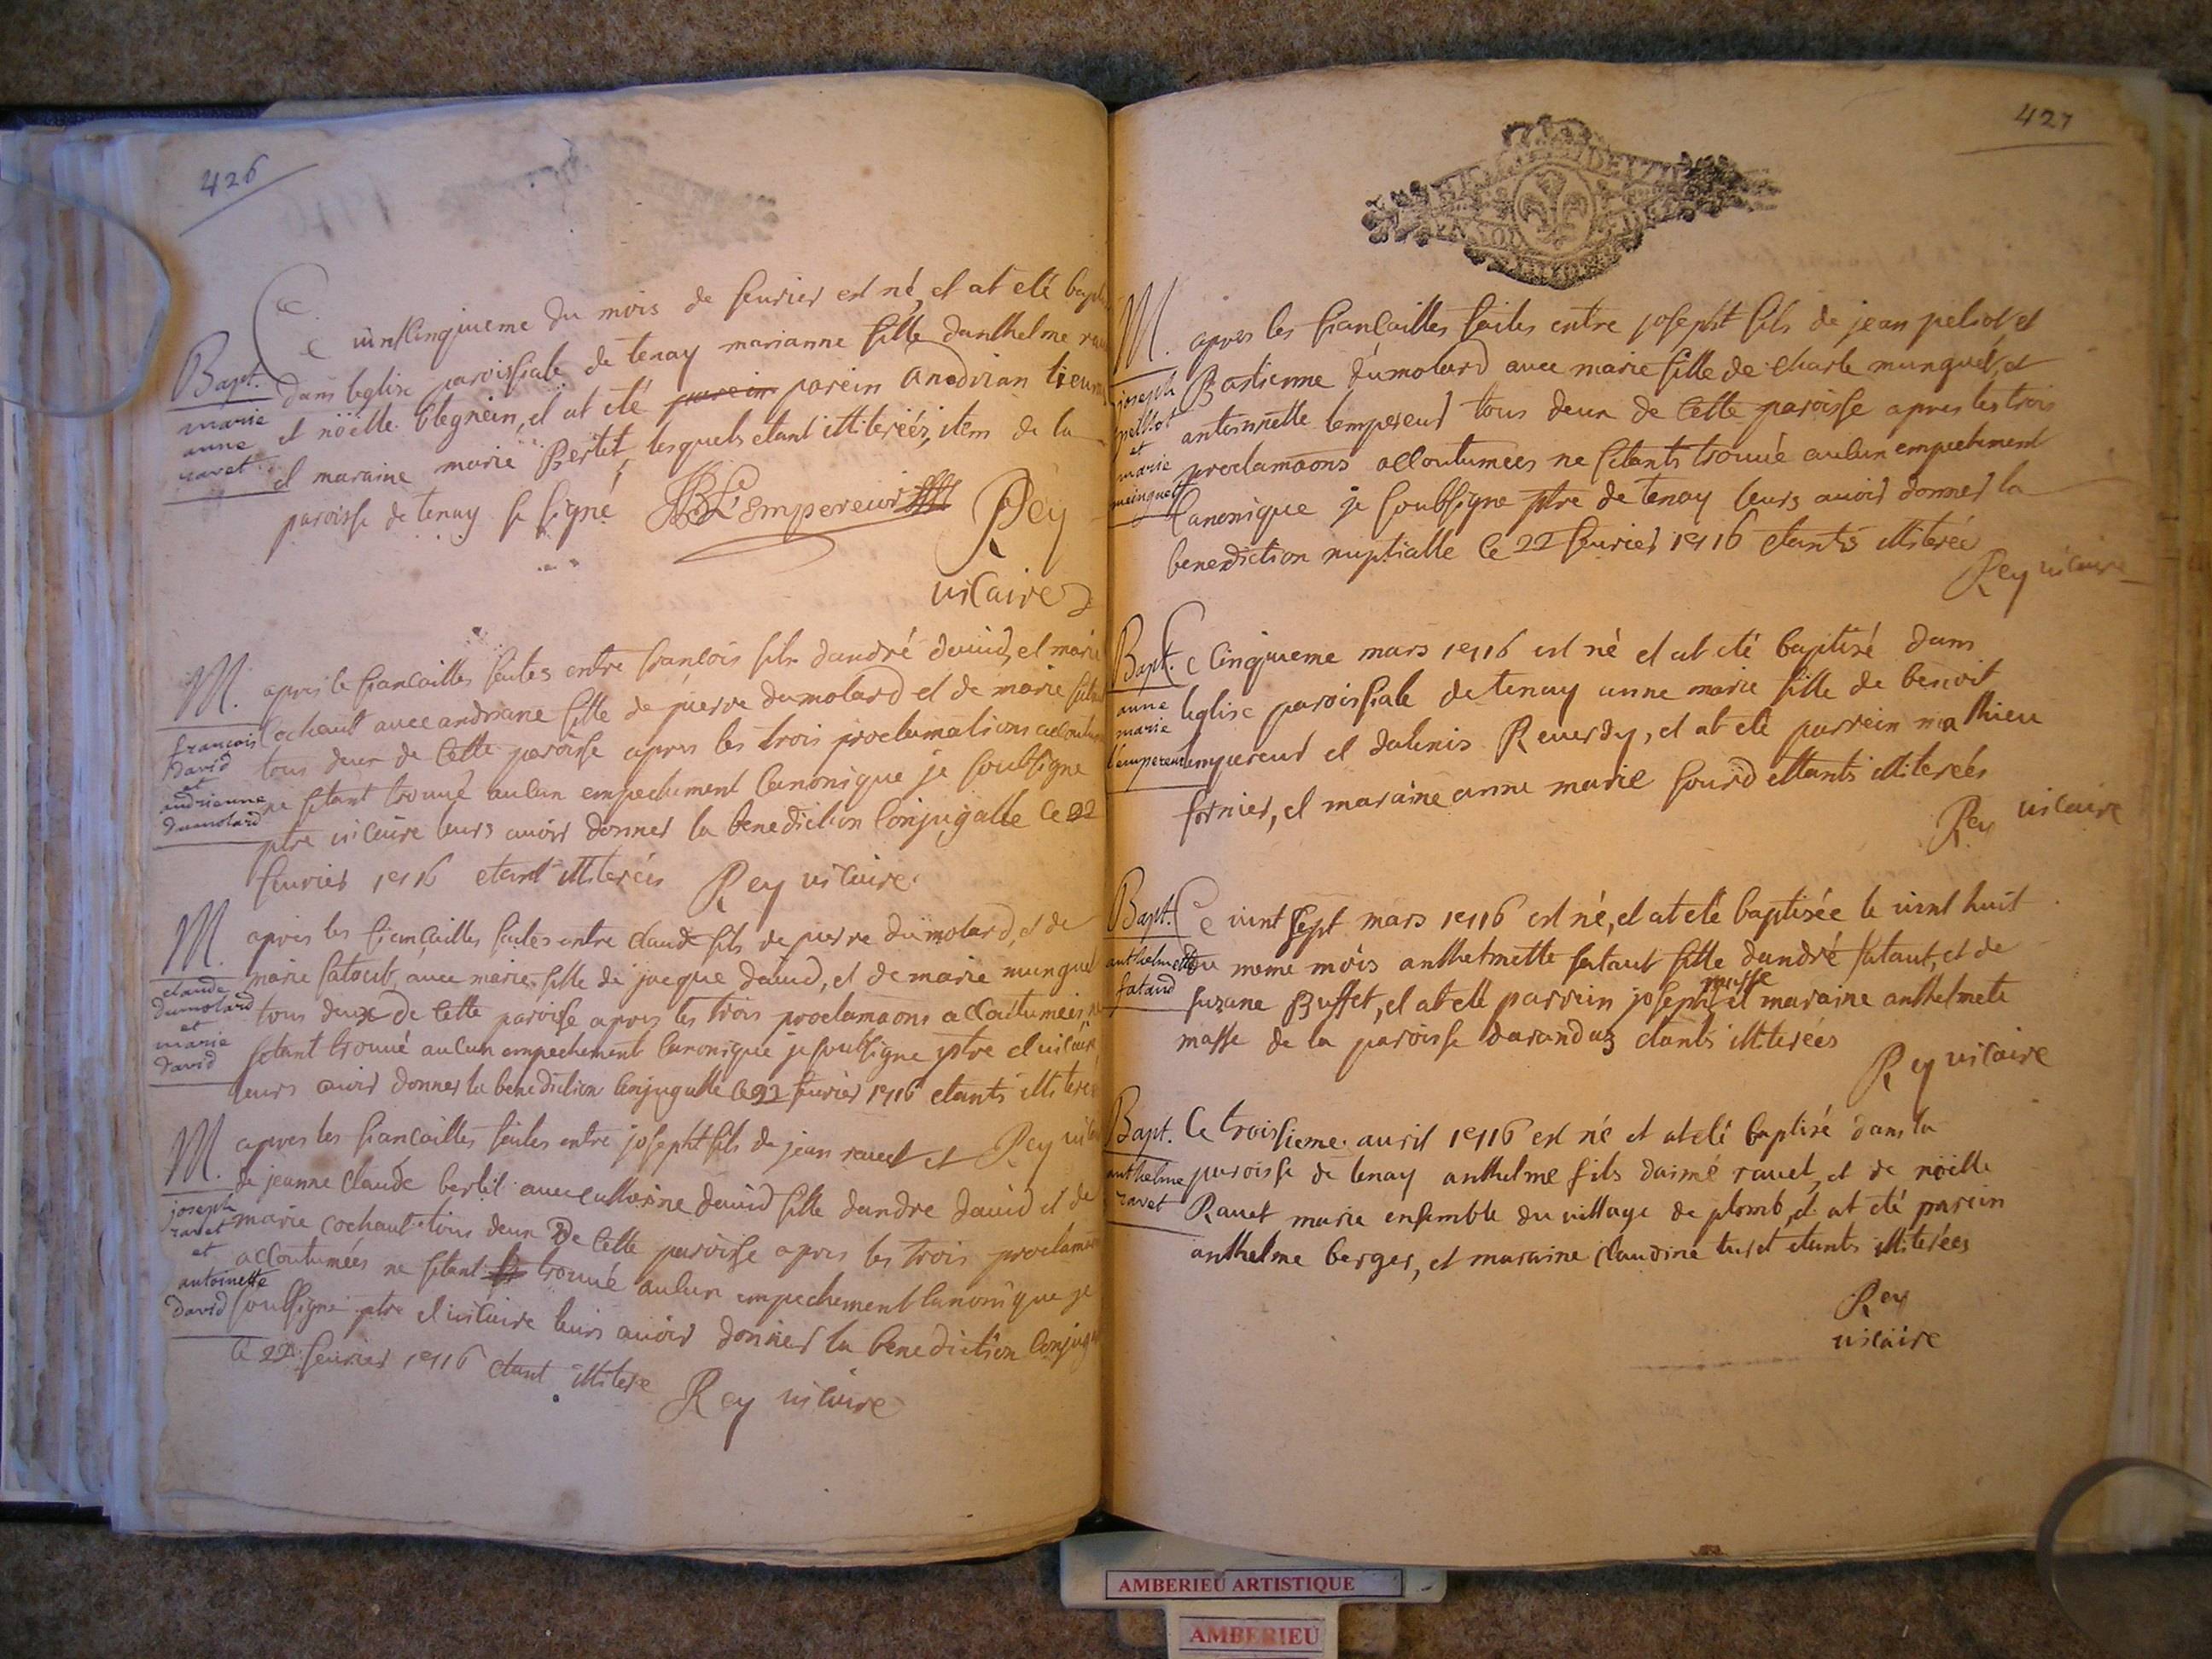 426
Ce vint cinquieme du mois de feurier est né, et at eté bapti
Bapt.
marie
anne
ravet
dans leglise paroissiale de tenay marianne fille danthelme rau
et nöelle blegnein, et at eté parein parein
et maraine marie Bertet, lesquels etant illiteréés, item de la
paroisse de tenay se signé JB Lempereur Rey
uicaire
M.
francois
David
et
andrienne
dumolard
apres le francailles faites entre françois fils dandré dauid, et marie
cochaut auec andriane fille de pierre dumolard et de marie
tous deux de cette paroisse apres les trois proclamations acoutum
ne setant trouué aucun empechement canonique je soubsigne
ptre uicaire leurs auoir donner la benediction conjugalle ce 22
feurier 1716 etant illiterées Rey uicaire
M.
claude
dumolard
et
marie
David
apres les fiancailles faites entre claude fils de pierre dumolard, et de
marie fataut, auec marie fille de jacque dauid, et de marie munguet
tous deux de cette paroisse apres les trois proclamaons accoutumées ne
setant trouué aucun empechement canonique je soubsigne ptre et uicaire
leurs auoir donner la benediction conjugalle ce 22 feurier 1716 etants illiteré
Rey uicai
M.
joseph
ravet
et
antoinette
David
apres les francailles faites entre josepht fils de jean rauet et
de jeanne claude bertet auec catherine dauid fille dandre dauid et de
marie cochaut tous deux de cette paroisse apres les trois proclamaon
accoutumées ne setant trouué aucun empechement canonique je
soubsigne ptre et uicaire leurs auoir donner la benediction conjug
le 22 feurier 1716 etant illitere Rey uicaire
427
M.
joseph
peillot
et
marie
apres les francailles faites entre josepht fils de jean peliot, et
Bastienne dumolard auec marie fille de charle munguet, et
antoinette lempereur tous deux de cette paroisse apres les trois
proclamaons accoutumees ne setants trouué aucun empechement
canonique je soubsigne ptre de tenay leurs auoir donner la
benediction nuptialle ce 22 feurier 1716 etants illiterée
Rey uicaire
Bapt.
anne
marie
l'empereur
Ce cinquieme mars 1716 est né et at eté baptisé dans
leglise paroissiale de tenay anne marie fille de benoit
lempereur et Reuerdy, et at eté parrein mathieu
fornier, et maraine anne marie sourd ettants illiterées
Rey uicaire
Bapt.
anthelmette
fataud
Ce vint sept mars 1716 est né, et at eté baptisée le vint huit
du meme mois anthelmette fataut fille dandré fataut, et de
suzane Buffet, et at eté parrein joseph masse et maraine anthelmete
masse de la paroisse darandaz etants illiterées
Rey uicaire
Bapt.
anthelme
ravet
Ce troissieme auril 1716 est né et at eté baptisé dans la
paroisse de tenay anthelme fils daimé rauet, et de nöelle
Rauet marie ensemble du uillage de plomb, et at eté parein
anthelme berger, et maraine claudine turet etants illiterées
Rey
uicaire
AMBERIEU ARTISTIQUE
AMBERIEU